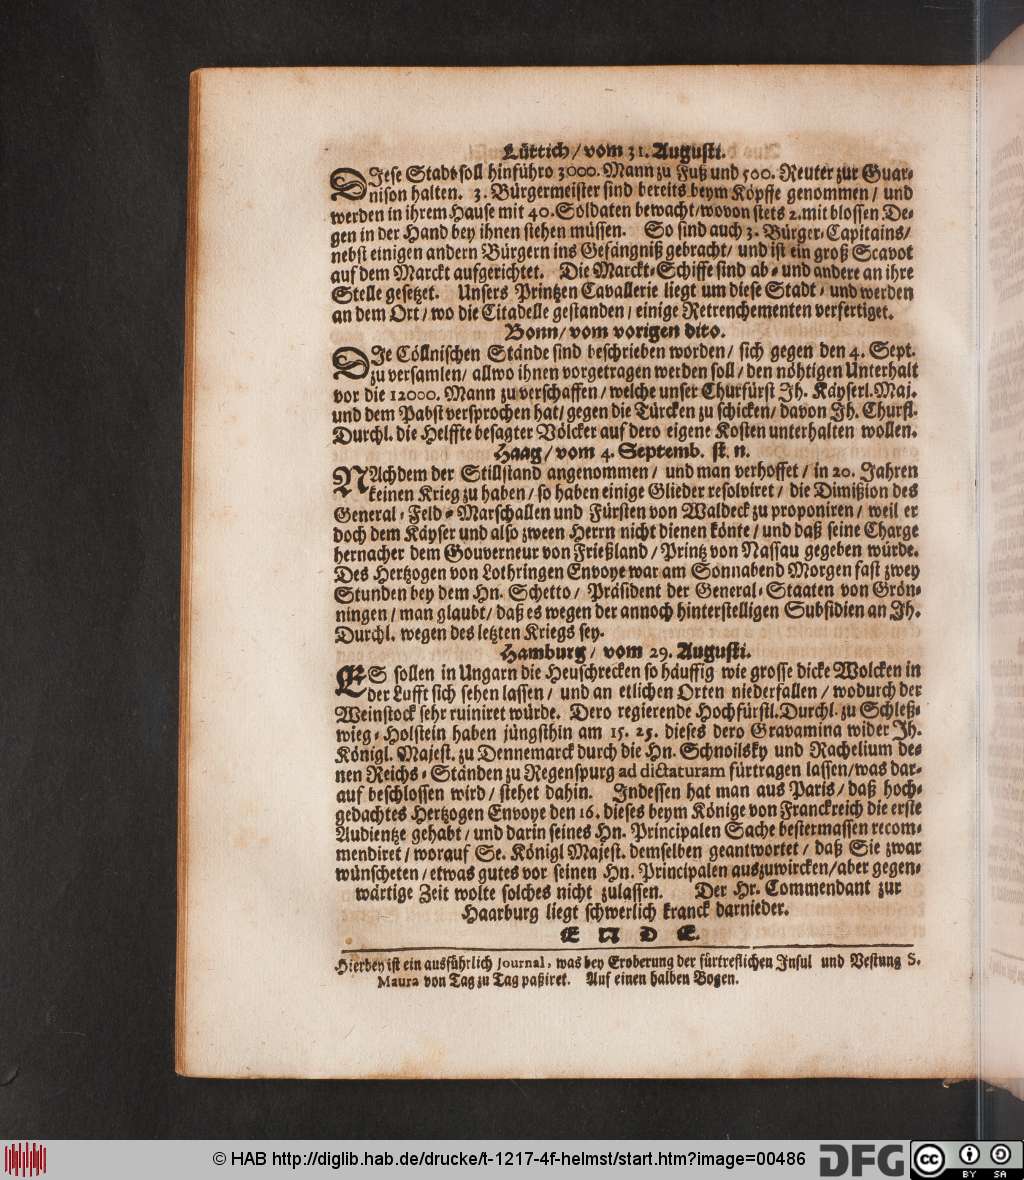 Lüttich/ vom 31. Augusti.
DIese Stadt soll hinführo 3000. Mann zu Fuß und 500. Reuter zur Guar-
nison halten. 3. Bürgermeister sind bereits beym Köpffe genommen/ und
werden in ihrem Hause mit 40. Soldaten bewacht/ wovon stets 2. mit blossen De-
gen in der Hand bey ihnen stehen müssen. So sind auch 3. Bürger-Capitains/
nebst einigen andern Bürgern ins Gefängniß gebracht/ und ist ein groß Scavot
auf dem Marckt aufgerichtet. Die Marckt-Schiffe sind ab- und andere an ihre
Stelle gesetzet. Unsers Printzen Cavallerie liegt um diese Stadt- und werden
an dem Ort/ wo die Citadelle gestanden/ einige Retrenchementen verfertiget.
Bonn/ vom vorigen dito.
DIe Cöllnischen Stände sind beschrieben worden/ sich gegen den 4. Sept.
zu versamlen/ allwo ihnen vorgetragen werden soll/ den nöhtigen Unterhalt
vor die 12000. Mann zu verschaffen/ welche unser Churfürst Jh. Käyserl. Maj.
und dem Pabst versprochen hat/ gegen die Türcken zu schicken/ davon Jh. Churfl.
Durchl. die Helffte besagter Völcker auf dero eigene Kosten unterhalten wollen.
Haag/ vom 4. Septemb. st. n.
NAchdem der Stillstand angenommen/ und man verhoffet/ in 20. Jahren
keinen Krieg zu haben/ so haben einige Glieder resolviret/ die Dimißion des
General-Feld-Marschallen und Fürsten von Waldeck zu proponiren/ weil er
doch dem Käyser und also zween Herrn nicht dienen könte/ und daß seine Charge
hernacher dem Gouverneur von Frießland/ Printz von Nassau gegeben würde.
Des Hertzogen von Lothringen Envoye war am Sonnabend Morgen fast zwey
Stunden bey dem Hn. Schetto/ Präsident der General-Staaten von Grön-
ningen/ man glaubt/ daß es wegen der annoch hinterstelligen Subsidien an Jh.
Durchl. wegen des letzten Kriegs sey.
Hamburg/ vom 29. Augusti.
ES sollen in Ungarn die Heuschrecken so häuffig wie grosse dicke Wolcken in
der Lufft sich sehen lassen/ und an etlichen Orten niederfallen/ wodurch der
Weinstock sehr ruiniret würde. Dero regierende Hochfürstl. Durchl. zu Schleß-
wieg-Holstein haben jüngsthin am 15. 25. dieses dero Gravamina wider Jh.
Königl. Majest. zu Dennemarck durch die Hn. Schnoilsky und Rachelium de-
nen Reichs-Ständen zu Regenspurg ad dictaturam fürtragen lassen/ was dar-
auf beschlossen wird/ stehet dahin. Jndessen hat man aus Paris/ daß hoch-
gedachtes Hertzogen Envoye den 16. dieses beym Könige von Franckreich die erste
Audientze gehabt/ und darin seines Hn. Principalen Sache bestermassen recom-
mendiret/ worauf Se. Königl Majest. demselben geantwortet/ daß Sie zwar
wünscheten/ etwas gutes vor seinen Hn. Principalen auszuwircken/ aber gegen-
wärtige Zeit wolte solches nicht zulassen. Der Hr. Commendant zur
Haarburg liegt schwerlich kranck darnieder.
E N D E.
Hierbey ist ein ausführlich Journal, was bey Eroberung der fürtreflichen Jnsul und Vestung S.
Maura von Tag zu Tag paßiret. Auf einen halben Bogen.
© HAB http://diglib.hab.de/drucke/t-1217-4f-helmst/start.htm?image=00486
DFG
cc
BY SA